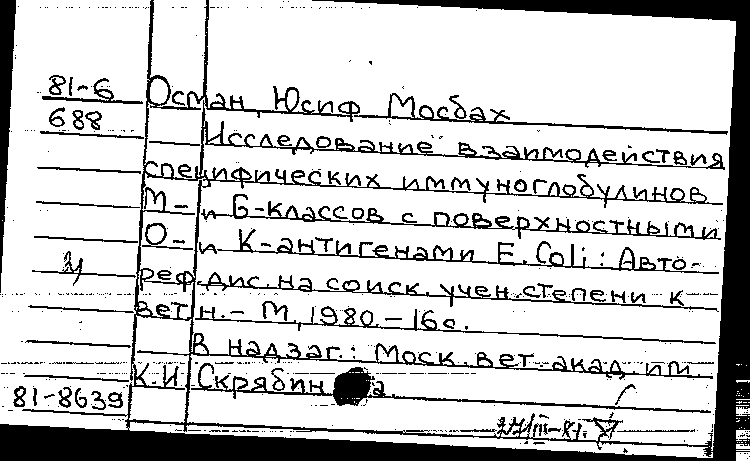 81-6 Осман, Юсиф Мосбах
688
Исследование взаимодействия
специфических иммуноглобулинов
М- и G-классов с поверхностными
О- и К-антигенами E.Coli: Авто-
реф.дис.на соиск.учен.степени к.
вет.н. - М, 1980. - 16с.
В надзаг.: Моск.вет.акад.им.
К.И.Скрябина.
81-8639